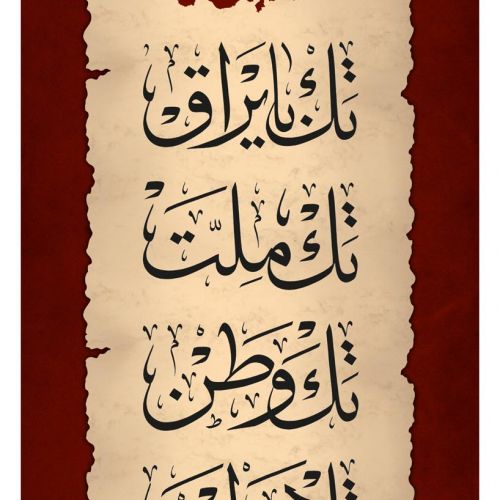 تَك بايراق
تَك مِلّت
تَك وَطَن